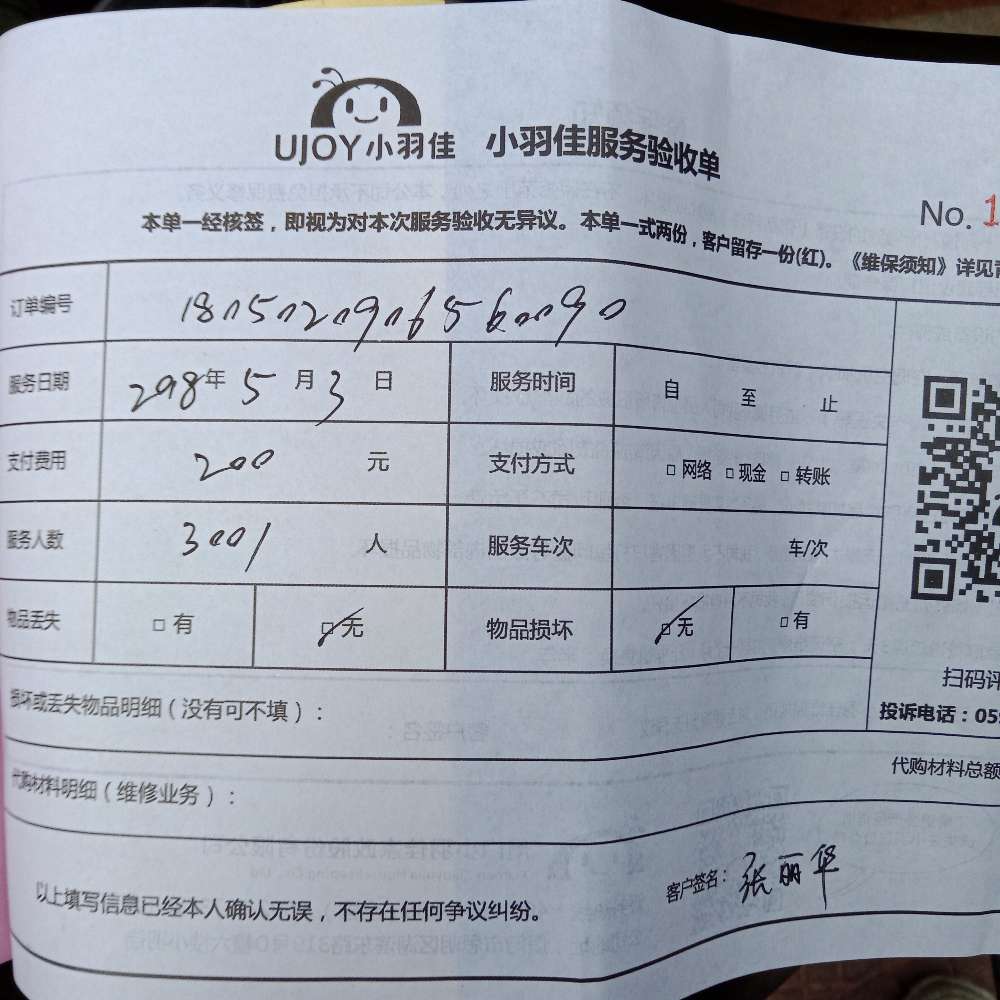 UJOY小羽佳 小羽佳服务验收单
No. 1
本单一经核签，即视为对本次服务验收无异议。本单一式两份，客户留存一份(红)。《维保须知》详见背
订单编号
服务日期 2018年 5 月 3 日 服务时间 自 至 止
支付费用 200 元 支付方式 □ 网络 □ 现金 □ 转账
服务人数 人 服务车次 车/次
物品丢失 □ 有 □ 无 物品损坏 □ 无 □ 有
扫码评
损坏或丢失物品明细（没有可不填）：
投诉电话：059
代购材料总额
代购材料明细（维修业务）：
以上填写信息已经本人确认无误，不存在任何争议纠纷。
客户签名：张丽华